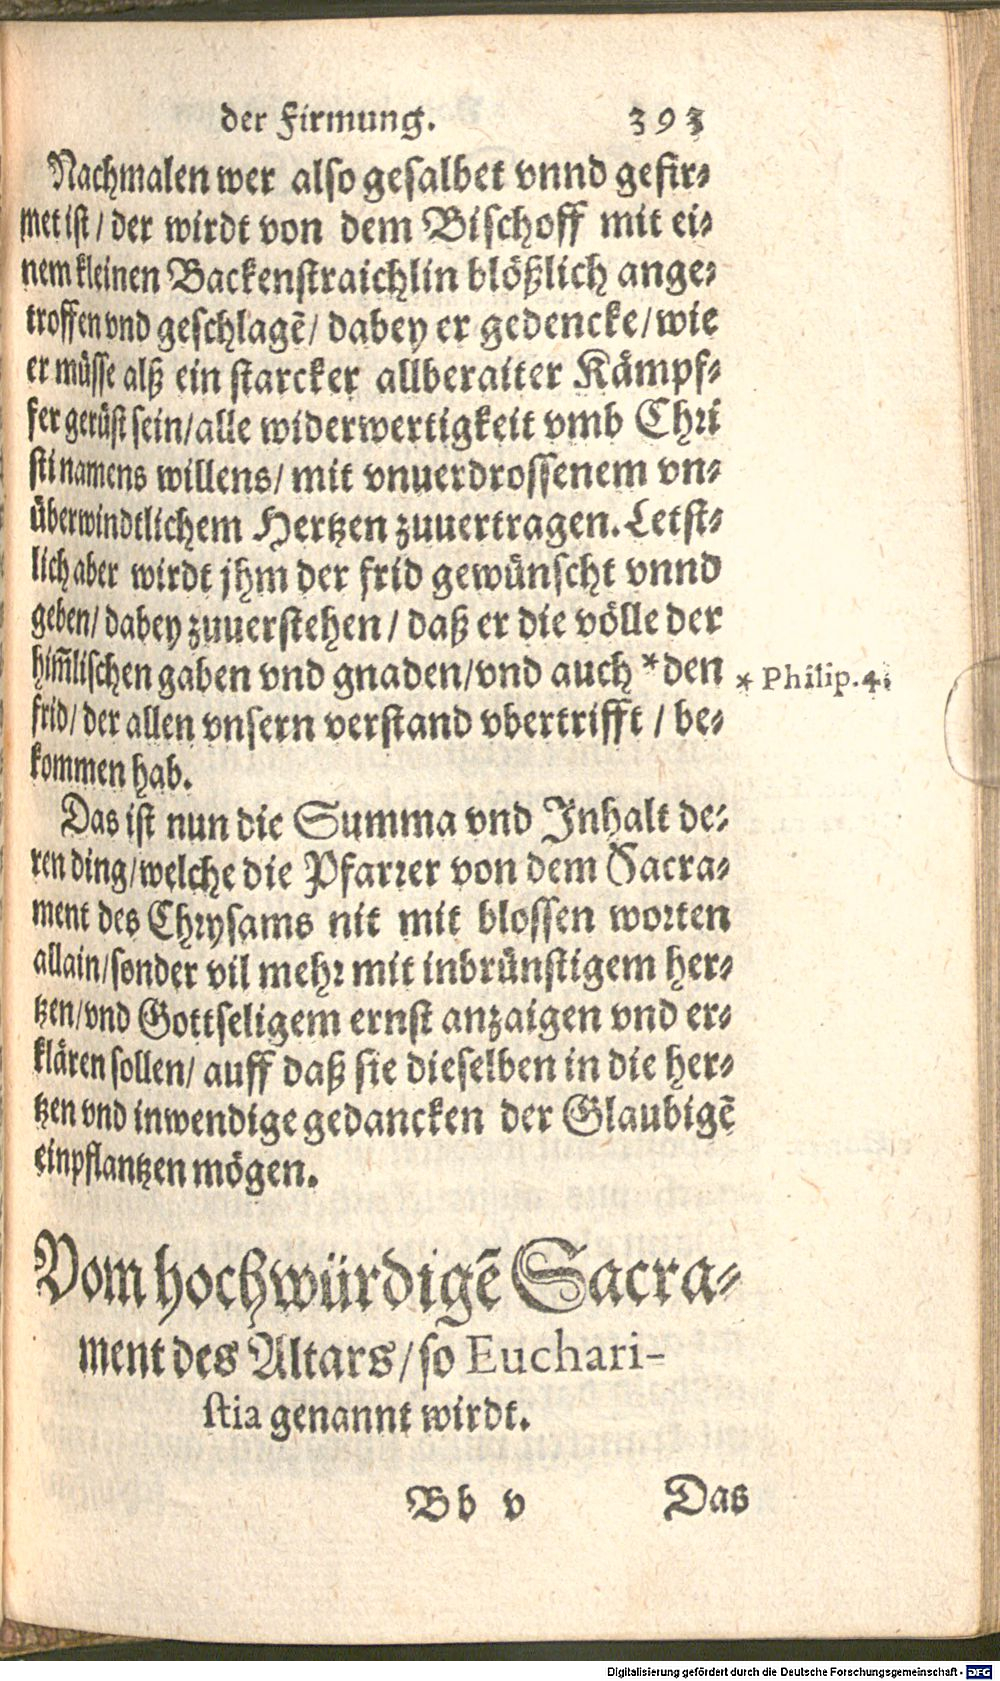 der Firmung. 393
Nachmalen wer also gesalbet vnnd gefir⸗
met ist / der wirdt von dem Bischoff mit ei⸗
nem kleinen Backenstraichlin blößlich ange⸗
troffen vnd geschlagẽ / dabey er gedencke / wie
er müsse alß ein starcker allberaiter Kämpf⸗
fer gerüst sein / alle widerwertigkeit vmb Chri
sti namens willens / mit vnuerdrossenem vn⸗
überwindtlichem Hertzen zuuertragen. Letst⸗
lich aber wirdt jhm der frid gewünscht vnnd
geben / dabey zuuerstehen / daß er die völle der
him̃lischen gaben vnd gnaden / vnd auch * den * Philip. 4.
frid / der allen vnsern verstand vbertrifft / be⸗
kommen hab.
Das ist nun die Summa vnd Inhalt de⸗
ren ding / welche die Pfarrer von dem Sacra⸗
ment des Chrysams nit mit blossen worten
allain / sonder vil mehr mit inbrünstigem her⸗
tzen / vnd Gottseligem ernst anzaigen vnd er⸗
klären sollen / auff daß sie dieselben in die her⸗
tzen vnd inwendige gedancken der Glaubigẽ
einpflantzen mögen.
Vom hochwürdigẽ Sacra⸗
ment des Altars / so Euchari-
stia genannt wirdt.
Bb v Das
Digitalisierung gefördert durch die Deutsche Forschungsgemeinschaft - DFG